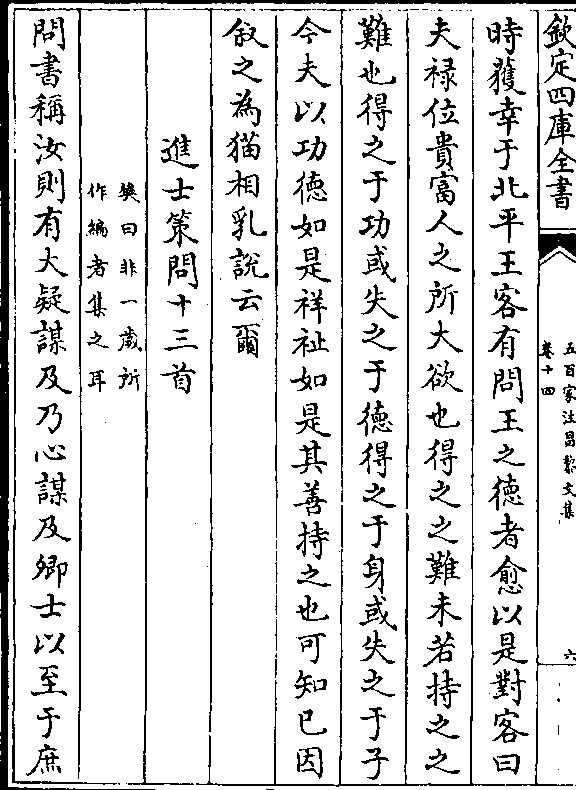 欽定四庫全書
五百家注昌黎文集
卷十四
六
時獲幸于北平王客有問王之德者愈以是對客曰
夫禄位貴富人之所大欲也得之之難未若持之之
難也得之于功或失之于德得之于身或失之于子
今夫以功德如是祥祉如是其善持之也可知已因
叙之為猫相乳說云爾
進士策問十三首
樊曰非一歳所
作編者集之耳
問書稱汝則有大疑謀及乃心謀及卿士以至于庶